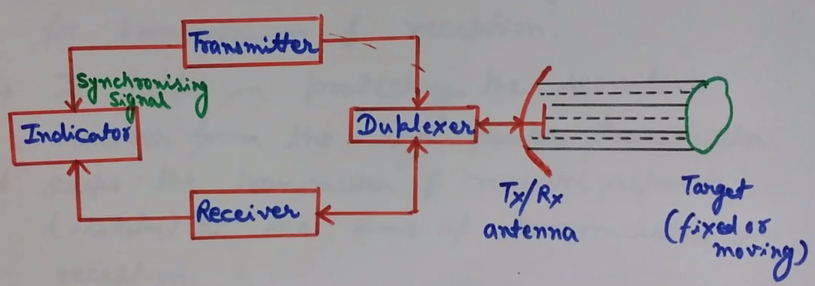 Transmitter
Synchronising
Signal
Indicator
Duplexer
Receiver
Tx/Rx
antenna
Target
(fixed or
moving)